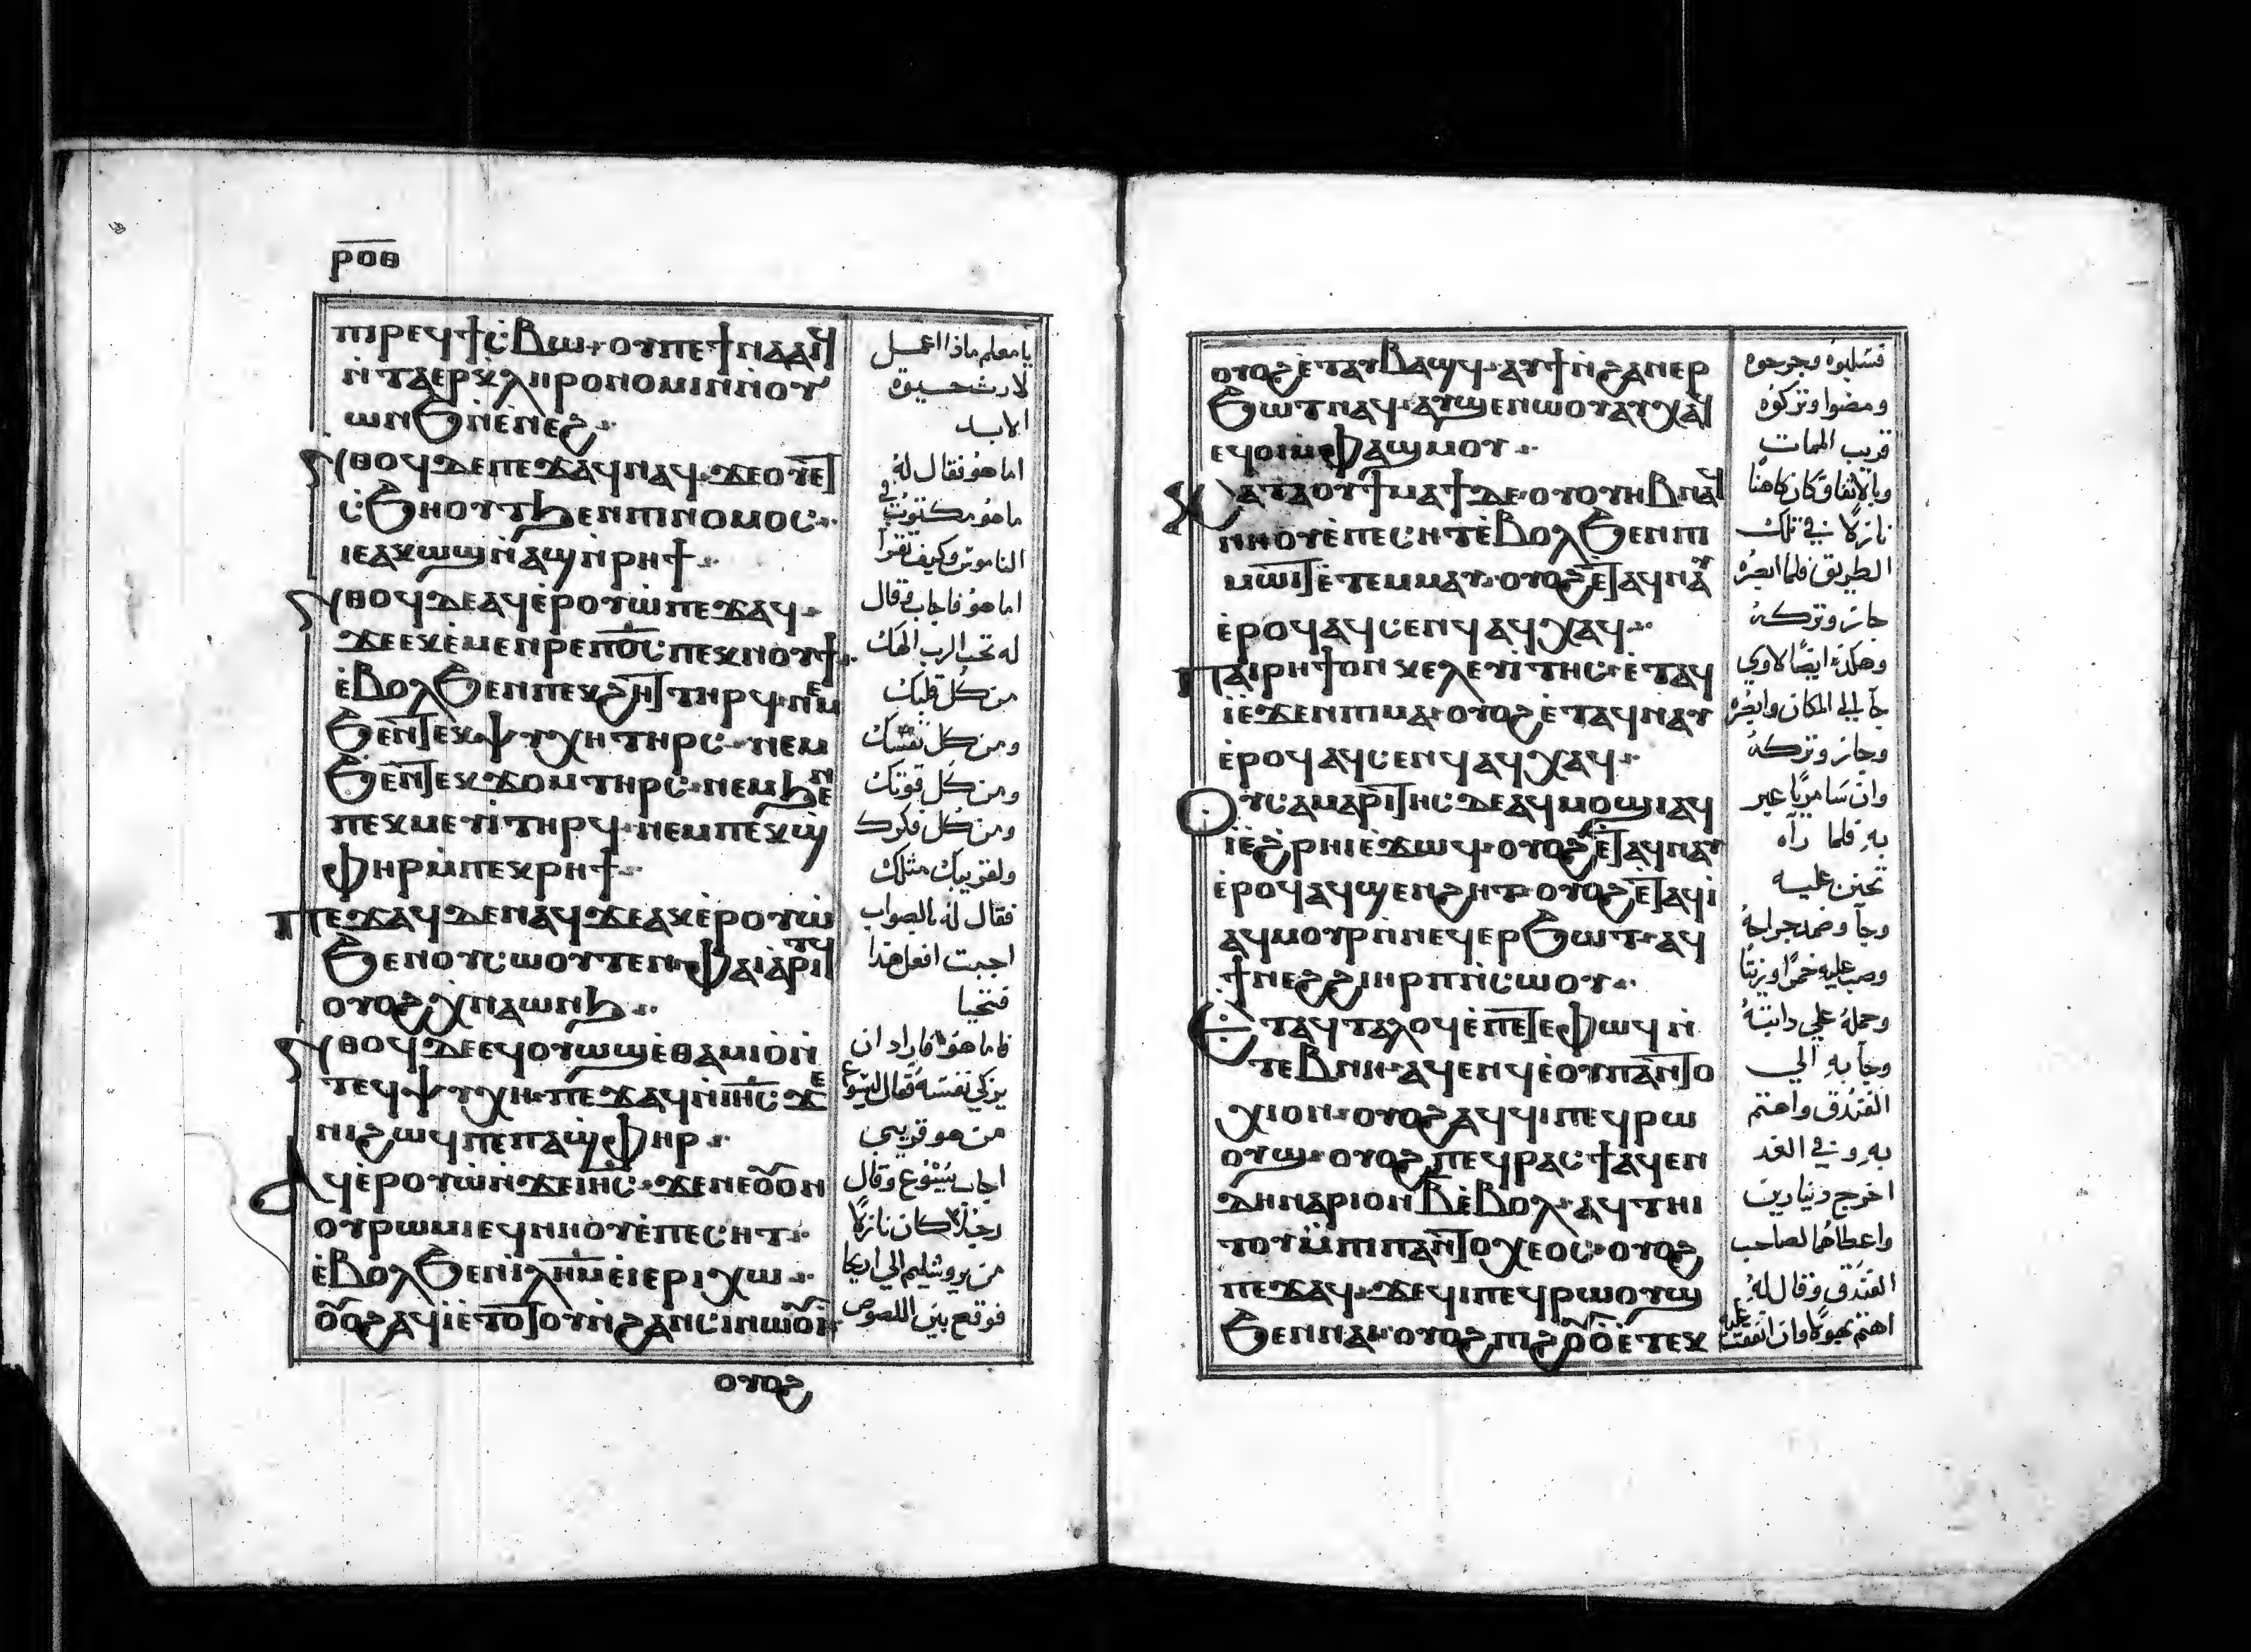 ⲣⲟⲑ
ⲡⲓⲣⲉϥϯⲥⲃⲱ ⲟⲩⲡⲉϯⲛⲁⲁⲓϥ
ⲛ̀ⲧⲁⲉⲣⲕⲗⲏⲣⲟⲛⲟⲙⲓⲛ ⲛ̀ⲟⲩ
ⲱⲛϧ ⲛ̀ⲉⲛⲉϩ
ⲛ̀ⲑⲟϥ ⲇⲉ ⲡⲉϫⲁϥ ⲛⲁϥ ϫⲉ ⲟⲩ ⲉⲧ
ⲥϧⲏⲟⲩⲧ ϧⲉⲛ ⲡⲓⲛⲟⲙⲟⲥ
ⲓⲉ ⲁⲕⲱϣ ⲛ̀ⲁϣ ⲛ̀ⲣⲏϯ
ⲛ̀ⲑⲟϥ ⲇⲉ ⲁϥⲉ̀ⲣⲟⲩⲱ̀ ⲡⲉϫⲁϥ
ϫⲉ ⲉⲕⲉ̀ⲙⲉⲛⲣⲉ ⲡⲟ̅ⲥ̅ ⲡⲉⲕⲛⲟⲩϯ
ⲉ̀ⲃⲟⲗ ϧⲉⲛ ⲡⲉⲕϩⲏⲧ ⲧⲏⲣϥ ⲛⲉⲙ
ϧⲉⲛ ⲧⲉⲕⲯⲩⲭⲏ ⲧⲏⲣⲥ ⲛⲉⲙ
ϧⲉⲛ ⲧⲉⲕϫⲟⲙ ⲧⲏⲣⲥ ⲛⲉⲙ ϧⲉⲛ
ⲡⲉⲕⲙⲉⲩⲓ̀ ⲧⲏⲣϥ ⲛⲉⲙ ⲡⲉⲕϣ̀
ⲫⲏⲣ ⲙ̀ⲡⲉⲕⲣⲏϯ
ⲡⲉϫⲁϥ ⲇⲉ ⲛⲁϥ ϫⲉ ⲁⲕⲉ̀ⲣⲟⲩⲱ̀
ϧⲉⲛ ⲟⲩⲥⲱⲟⲩⲧⲉⲛ ⲫⲁⲓ ⲁ̀ⲣⲓⲧϥ
ⲟⲩⲟϩ ⲭⲛⲁⲱⲛϧ
ⲛ̀ⲑⲟϥ ⲇⲉ ⲉϥⲟⲩⲱϣ ⲉ̀ⲑⲁⲙⲓⲟ̀ ⲛ̀
ⲧⲉϥⲯⲩⲭⲏ ⲡⲉϫⲁϥ ⲛ̀ⲓⲏ̅ⲥ̅ ϫⲉ
ⲛⲓⲙ ϩⲱϥ ⲡⲉ ⲡⲁϣ̀ⲫⲏⲣ
ⲁϥⲉ̀ⲣⲟⲩⲱ̀ ⲛ̀ϫⲉ ⲓⲏ̅ⲥ̅ ϫⲉ ⲛⲉⲟⲩⲟⲛ
ⲟⲩⲣⲱⲙⲓ ⲉϥⲛⲏⲟⲩ ⲉ̀ⲡⲉⲥⲏⲧ
ⲉ̀ⲃⲟⲗ ϧⲉⲛ ⲓ̀ⲗⲏ̅ⲙ̅ ⲉ̀ⲓⲉⲣⲓⲭⲱ
ⲟⲩⲟϩ ⲁϥⲓ̀ ⲉ̀ⲧⲟⲧⲟⲩ ⲛ̀ϩⲁⲛⲥⲓⲛⲱⲟⲩⲓ̀
ⲟⲩⲟϩ
يا معلم ماذا اعمل
لارث حيوة
الابد
اما هو فقال له
ما هو مكتوب في
الناموس وكيف تقرأ
اما هو فاجاب وقال
له تحب الرب الهك
من كل قلبك
ومن كل نفسك
ومن كل قوتك
ومن كل فكرك
ولقريبك مثلك
فقال له بالصواب
اجبت افعل هذا
فتحيا
فاما هو فاراد ان
يزكي نفسه فقال ليسوع
من هو قريبي
اجاب يسوع وقال
رجلا كان نازلا
من يروشليم الي اريحا
فوقع بين اللصوص
ⲟⲩⲟϩ ⲉ̀ⲧⲁⲩⲃⲁϣϥ ⲁⲩϯ ⲛ̀ϩⲁⲛⲉⲣ
ϧⲱⲧ ⲛⲁϥ ⲁⲩϣⲉⲛⲱⲟⲩ ⲁⲩⲭⲁϥ
ⲉϥⲟⲓ ⲙ̀ⲫⲁϣⲙⲟⲩ
ⲕⲁⲧⲁ ⲟⲩϯⲙⲁϯ ⲇⲉ ⲟⲩⲟⲩⲏⲃ ⲛⲁϥ
ⲛⲏⲟⲩ ⲉ̀ⲡⲉⲥⲏⲧ ⲉ̀ⲃⲟⲗ ϧⲉⲛ ⲡⲓ
ⲙⲱⲓⲧ ⲉ̀ⲧⲉⲙⲙⲁⲩ ⲟⲩⲟϩ ⲉⲧⲁϥⲛⲁⲩ
ⲉ̀ⲣⲟϥ ⲁϥⲥⲉⲛϥ ⲁϥⲭⲁϥ
ⲡⲁⲓⲣⲏϯ ⲟⲛ ⲕⲉⲗⲉⲩⲓ̀ⲧⲏⲥ ⲉ̀ⲧⲁϥ
ⲓ̀ ⲉϫⲉⲛ ⲡⲓⲙⲁ ⲟⲩⲟϩ ⲉ̀ⲧⲁϥⲛⲁⲩ
ⲉ̀ⲣⲟϥ ⲁϥⲥⲉⲛϥ ⲁϥⲭⲁϥ
ⲟⲩⲥⲁⲙⲁⲣⲓⲧⲏⲥ ⲇⲉ ⲁϥⲙⲟϣⲓ ⲁϥ
ⲓ̀ ⲉ̀ϩⲣⲏⲓ ⲉϫⲱϥ ⲟⲩⲟϩ ⲉⲧⲁϥⲛⲁⲩ
ⲉ̀ⲣⲟϥ ⲁϥϣⲉⲛϩⲏⲧ ⲟⲩⲟϩ ⲉⲧⲁϥⲓ̀
ⲁϥⲙⲟⲩⲣ ⲛ̀ⲛⲉϥⲉⲣϧⲱⲧ ⲁϥ
ϯ ⲛⲉϩ ϩⲓ ⲏⲣⲡ ⲛ̀ⲥⲱⲟⲩ
ⲉⲧⲁϥⲧⲁⲗⲟϥ ⲉ̀ⲡⲉⲧⲉⲫⲱϥ ⲛ̀
ⲧⲉⲃⲛⲏ ⲁϥⲉⲛϥ ⲉ̀ⲟⲩⲡⲁⲛⲧⲟ
ⲭⲓⲟⲛ ⲟⲩⲟϩ ⲁϥϥⲓ ⲡⲉϥⲣⲱ
ⲟⲩϣ ⲟⲩⲟϩ ⲡⲉϥⲣⲁⲥϯ ⲁϥⲉⲛ
ⲇⲏⲛⲁⲣⲓⲟⲛ ⲃ̅ ⲉ̀ⲃⲟⲗ ⲁϥⲧⲏⲓ
ⲧⲟⲩ ⲙ̀ⲡⲓⲡⲁⲛⲧⲟⲭⲉⲟⲥ ⲟⲩⲟϩ
ⲡⲉϫⲁϥ ϫⲉ ϥⲓ ⲡⲉϥⲣⲱⲟⲩϣ
ϧⲉⲛ ⲛⲁⲓ ⲟⲩⲟϩ ⲡⲓϩⲟⲩⲟ̀ ⲉ̀ⲧⲉⲕ
فسلبوه وجرحوه
ومضوا وتركوه
قريب الممات
وبالاتفاق كان كاهنا
نازلا في تلك
الطريق فلما ابصره
جاز وتركه
وهكذه ايضا لاوي
جآ الي المكان وابصره
وجاز وتركه
وان سامريا عبر
به فلما رآه
تحنن عليه
وجآ وضمد جراحه
وصب عليه خمرا وزيتا
وحمله علي دابته
وجآ به الي
الفندق واهتم
به وفي الغد
اخرج دينارين
واعطاهما لصاحب
الفندق وقال له
اهتم بهولا وان انفقت عليه